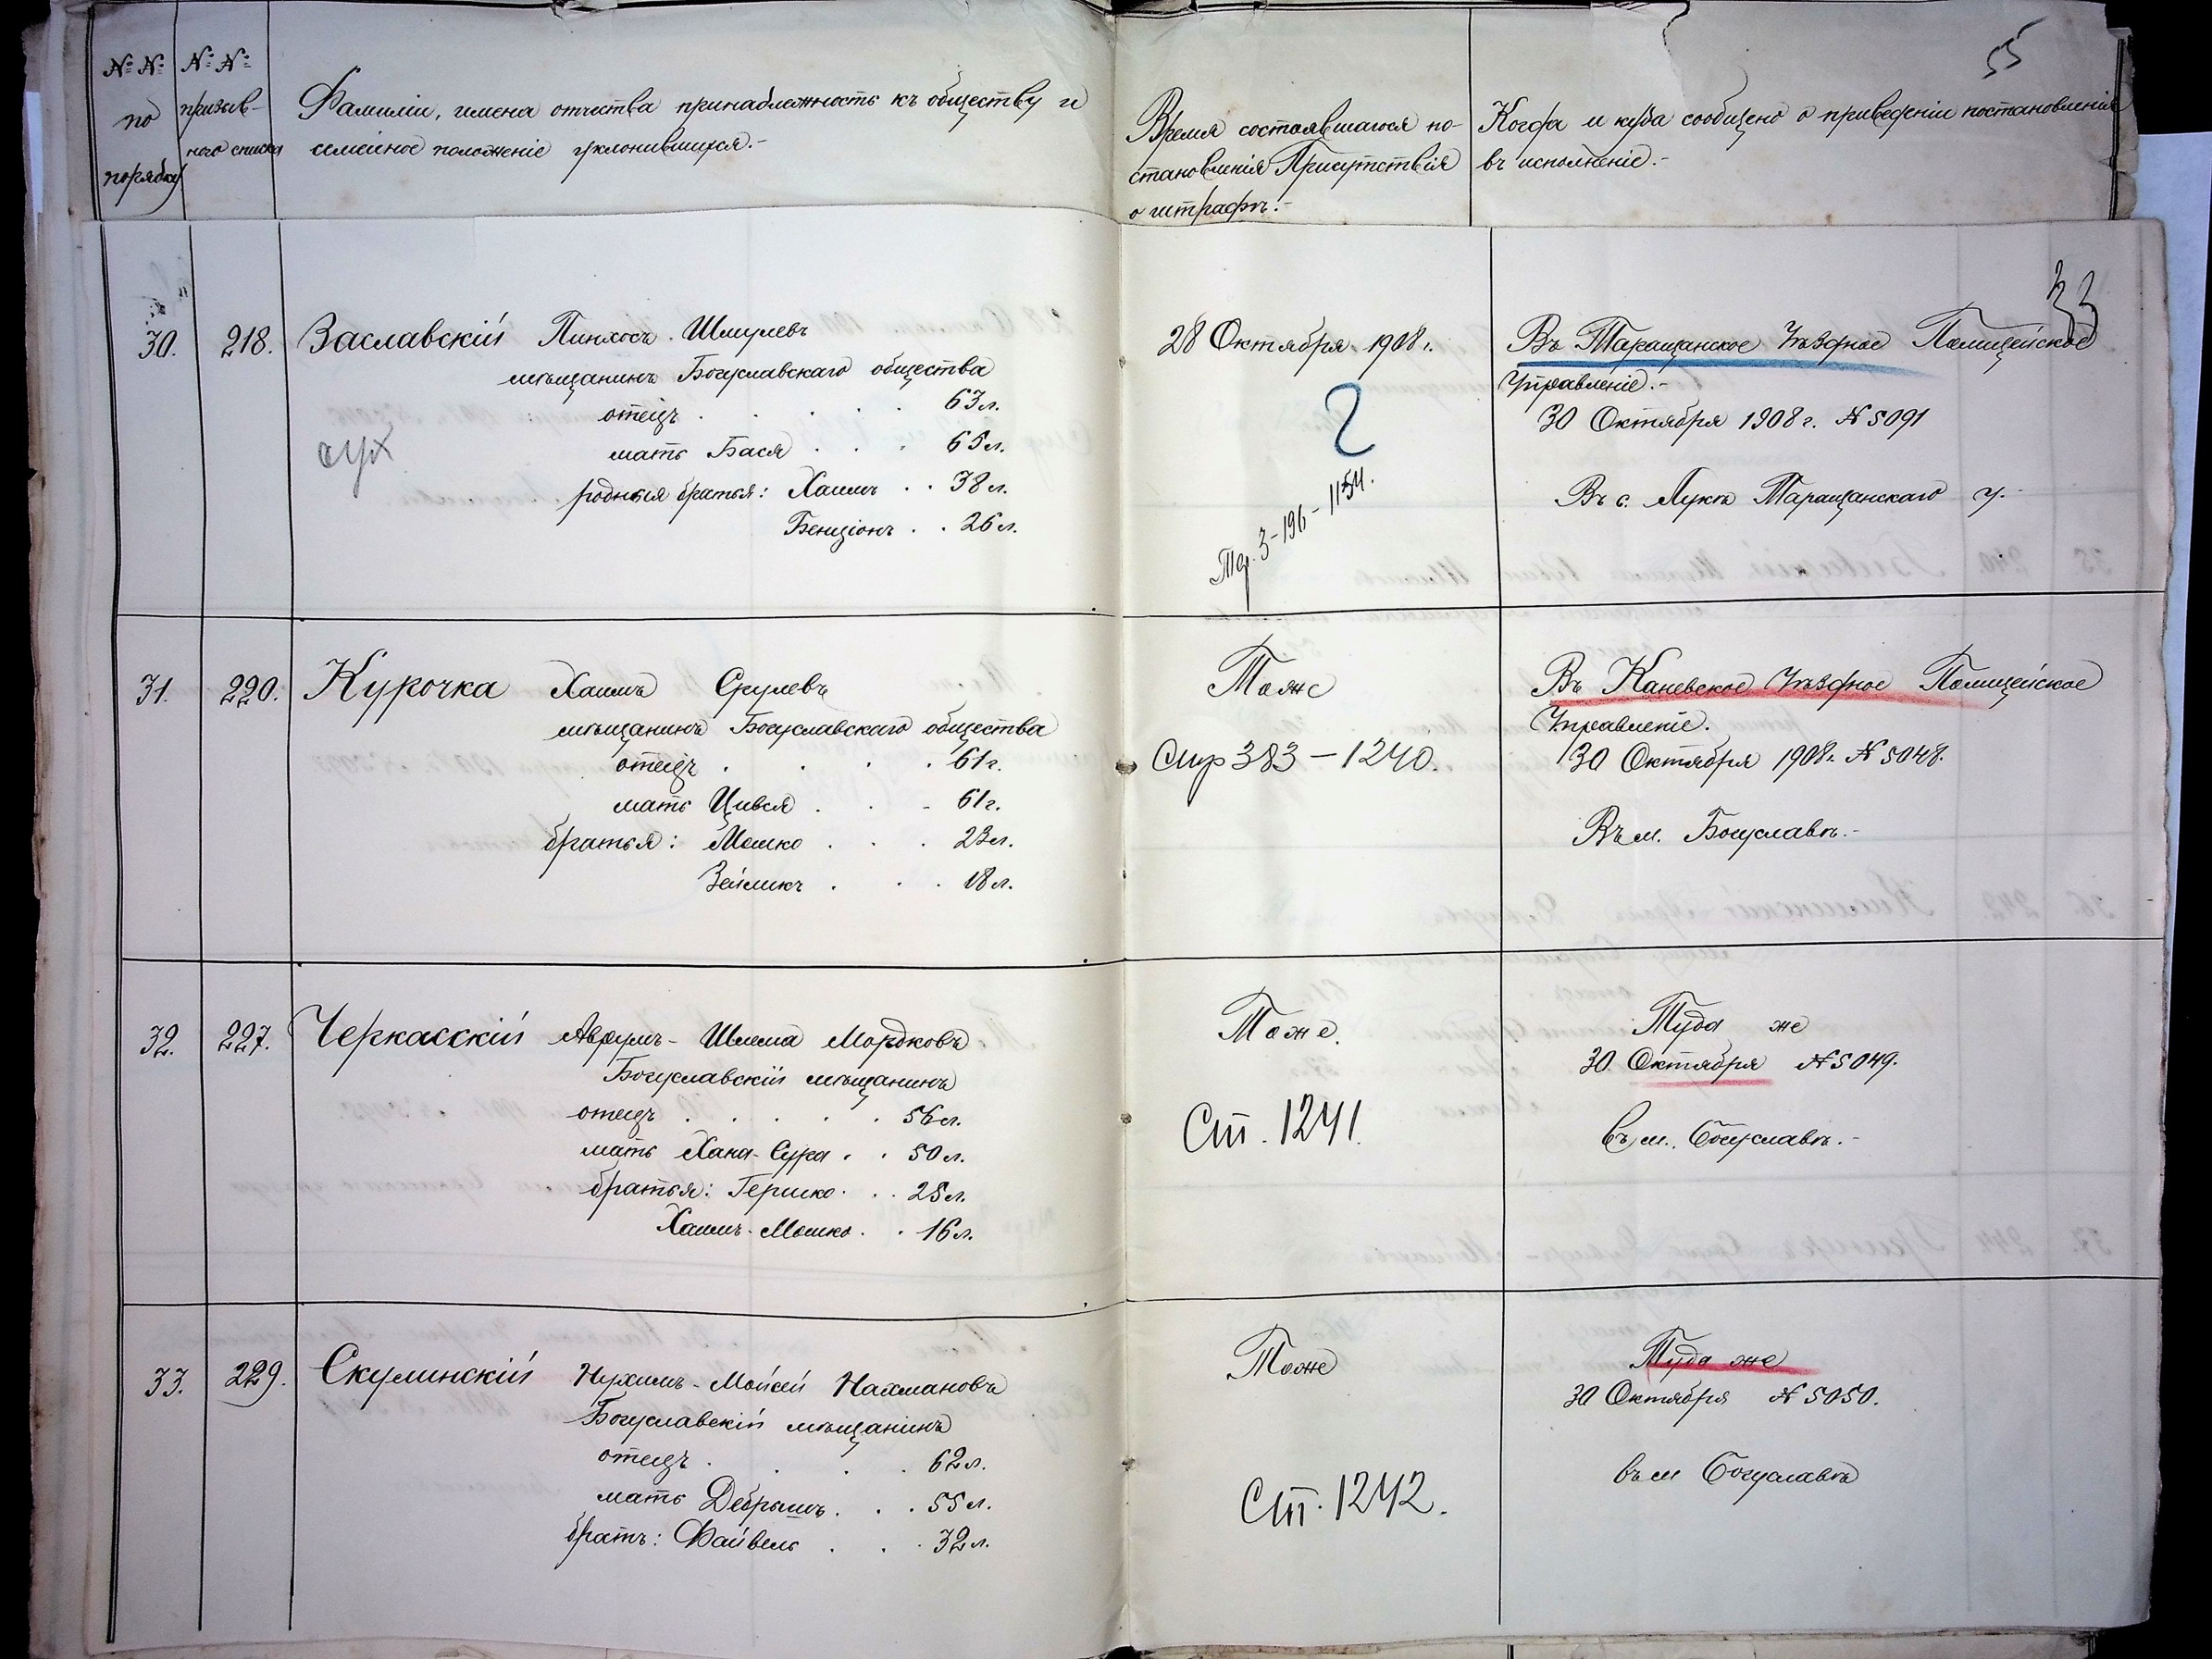 55
№№ по порядку
№№ призыв-
наго списка
Фамиліи, имена отчества принадлежность къ обществу и
семейное положеніе уклонившихся.-
Время состоявшагося по-
становленія Присутствія
о штрафѣ.-
Когда и куда сообщено о приведеніи постановленія
въ исполненіе.-
33
30. 218. Заславскій Пинхосъ Шмулевъ
мѣщанинъ Богуславскаго общества
отецъ . . . . 63 л.
мать Бася . . . 65 л.
родныя братья: Хаимъ . . 38 л.
Бенціонъ . . 26 л.
28 Октября 1908 г.
2
3-196-1154.
Въ Таращанское Уѣздное Полицейское
Управленіе.-
30 Октября 1908 г. № 5091
Въ с. Лукѣ Таращанскаго у.-
31. 220. Курочка Хаимъ Срулевъ
мѣщанинъ Богуславскаго общества
отецъ . . . . 61 г.
мать Цивья . . . 61 г.
братья: Мошко . . . 23 л.
Зейликъ . . . 18 л.
Тоже
383-1240.
Въ Каневское Уѣздное Полицейское
Управленіе.
30 Октября 1908 г. № 5048.
Въ м. Богуславѣ.-
32. 227. Черкасскій Аврумъ-Шлема Мордковъ
Богуславскій мѣщанинъ
отецъ . . . . . 56 л.
мать Хана-Сура . . 50 л.
братья: Гершко . . 25 л.
Хаимъ-Мошко . . 16 л.
Тоже.
Ст. 1241.
Туда же
30 Октября № 5049.
въ м. Богуславѣ.-
33. 229. Скулинскій Нухимъ-Мойсей Нахмановъ
Богуславскій мѣщанинъ
отецъ . . . 62 л.
мать Дебрышъ . . . 55 л.
братъ: Файвель . . . 32 л.
Тоже
Ст. 1242.
Туда же
30 Октября № 5050.
въ м Богуславѣ